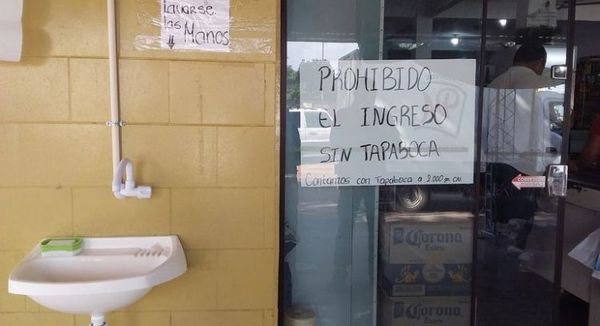 Lavarse
las
Manos
PROHIBIDO
EL INGRESO
SIN TAPABOCA
Contamos con Tapaboca a 2.000
Corona
Extra
Corona
Extra